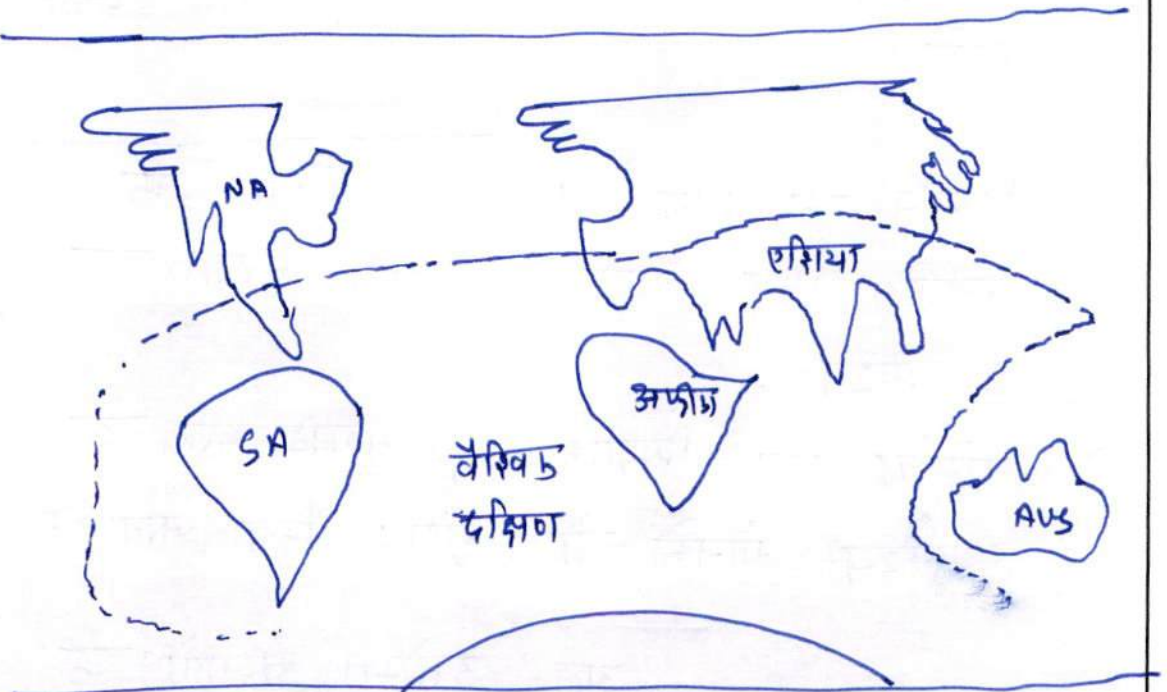 NA
एशिया
अफ्रीका
SA
वैश्विक
दक्षिण
AUS